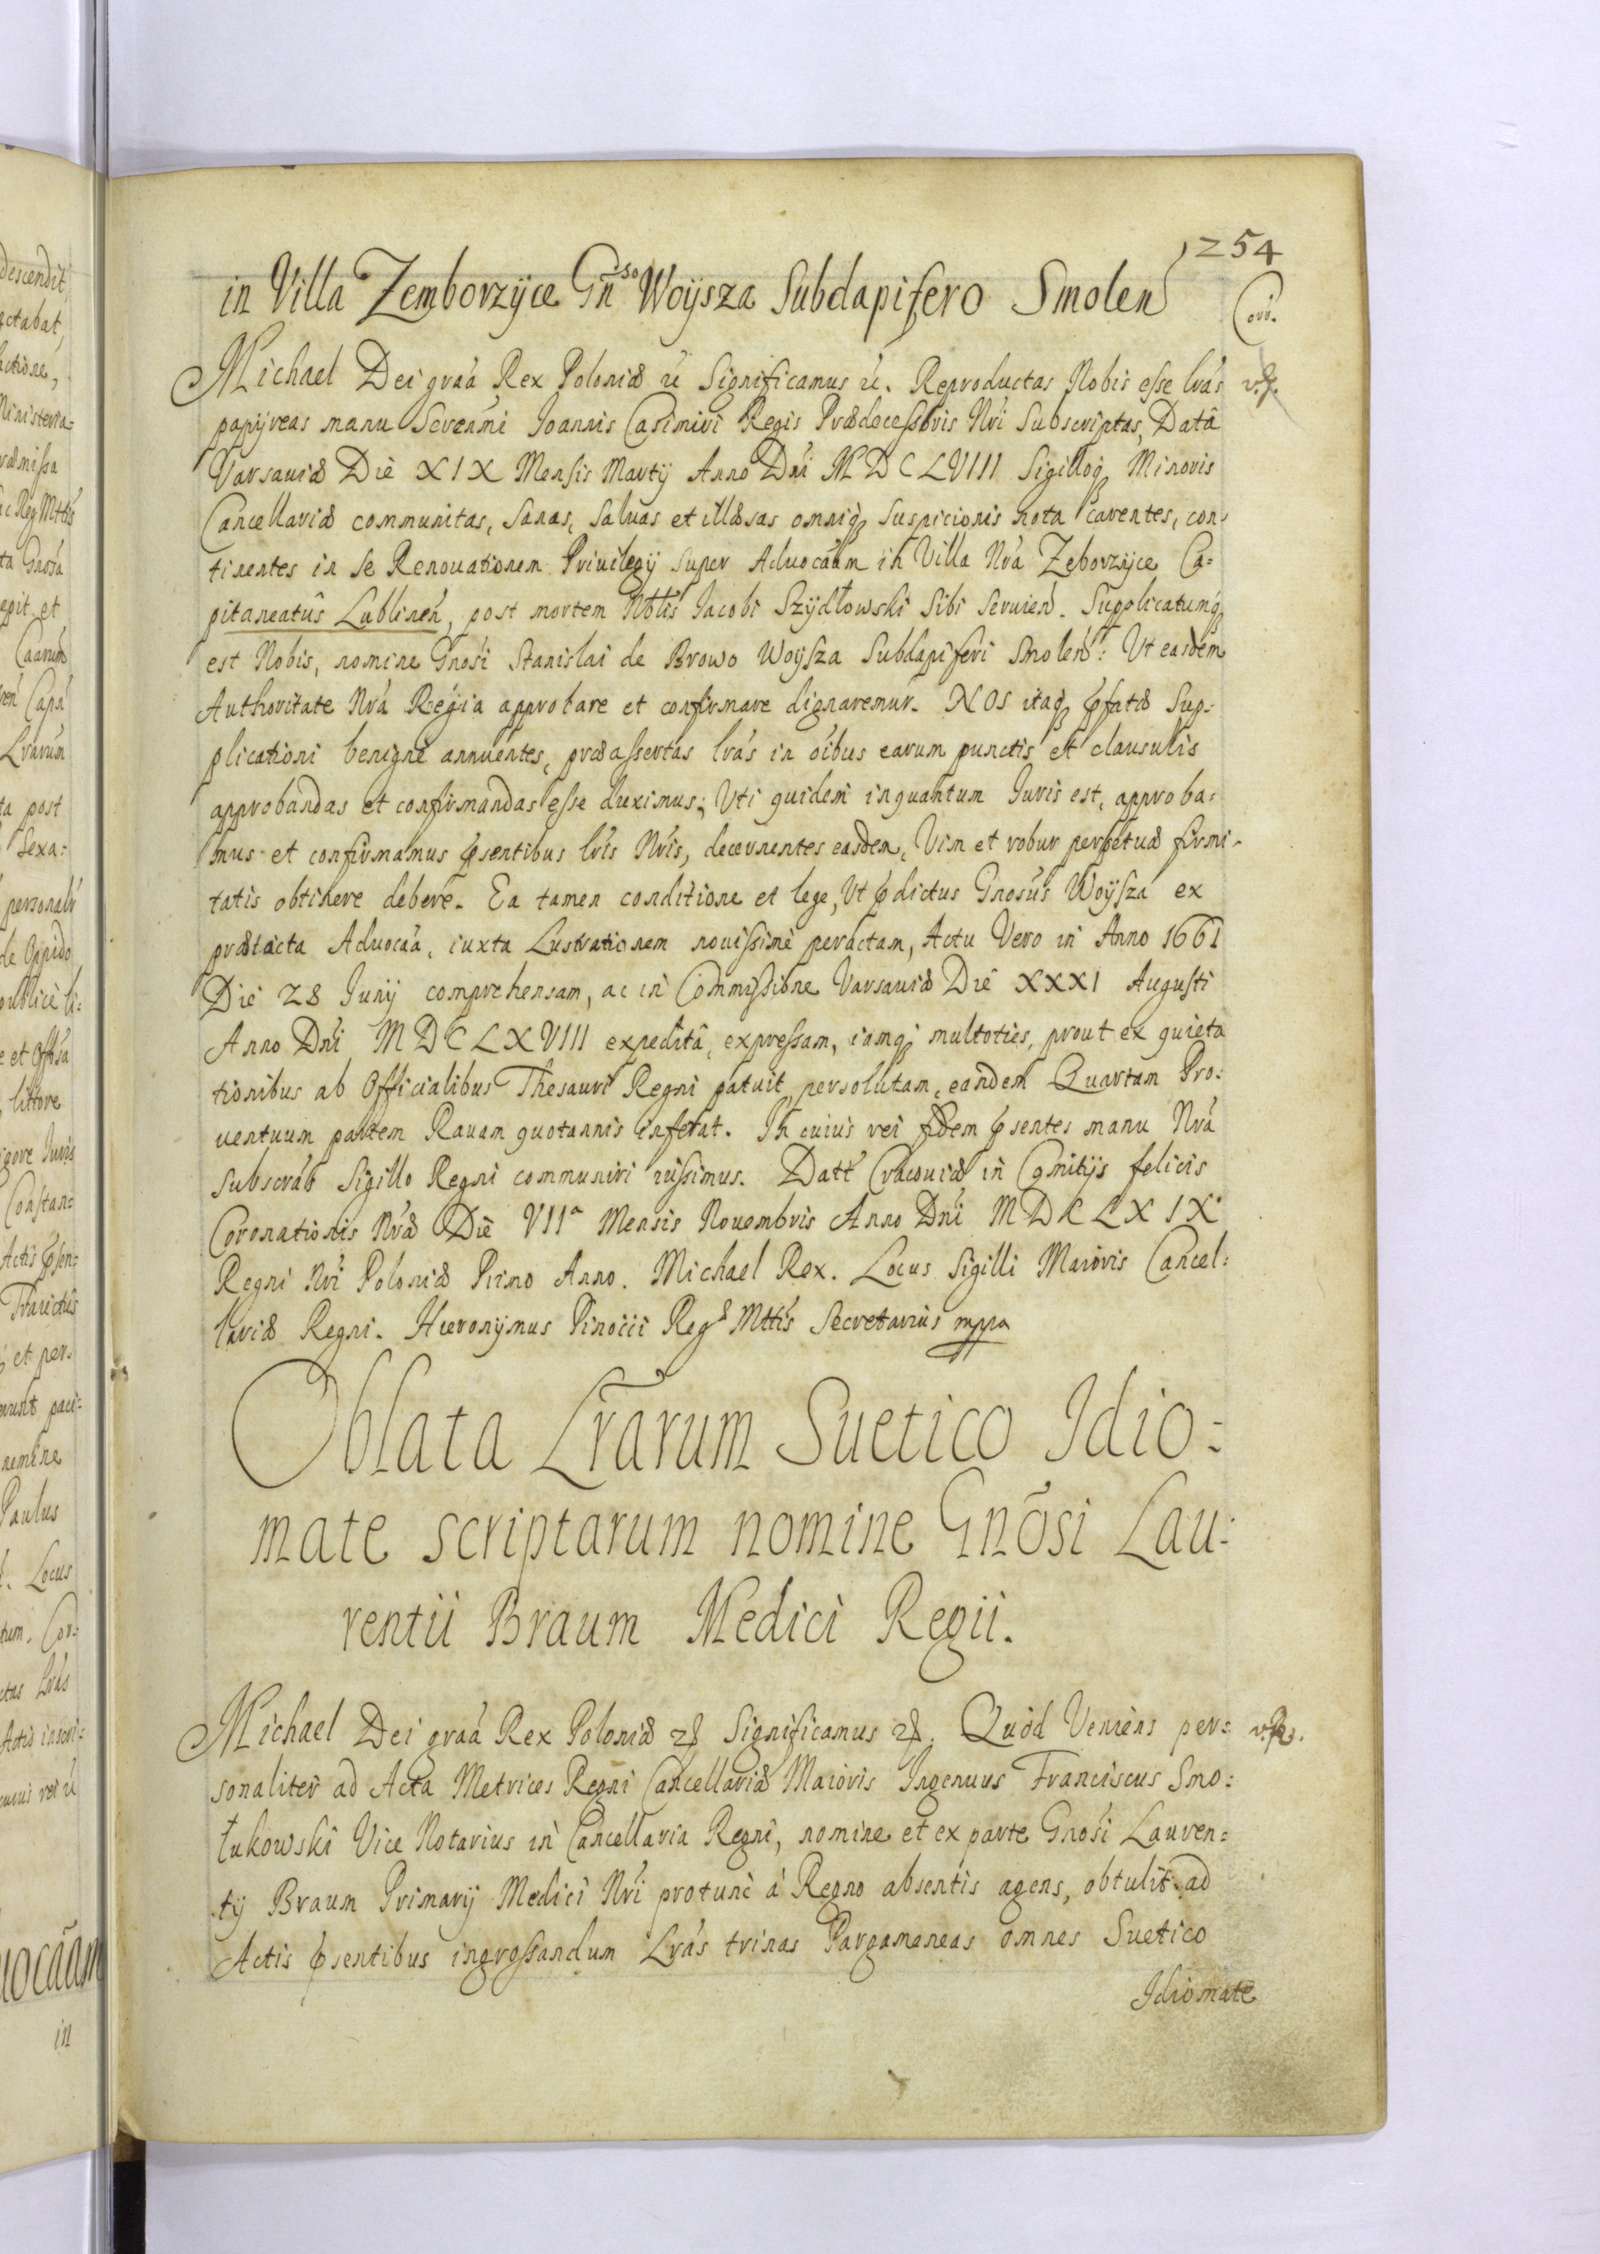 1254
in Villa Zemborzÿce Gn̄so Woÿsza Subdapifero Smolen
Corr.
Michael Dei graá Rex Poloniæ &c Significamus &c. Reproductas Nobis esse lrás
papÿreas manu Serenmi Joannis Casimiri Regis Prædecessoris Nri Subscriptas, Datâ
Varsauiæ Die XIX Mensis Martÿ Anno Dni MDCLVIII Sigilloq Minoris
Cancellariæ communitas, sanas, saluas et illæsas omniq suspicionis nota carentes, con-
tinentes in se Renouationem Priuilegÿ super Aduocáam in Villa Nrá Zeborzÿce Ca=
pitaneatûs Lublinen, post mortem Nblis Jacobi Szÿdłowski sibi seruien. Supplicatumq
est Nobis, nomine Gnosi Stanislai de Browo Woÿsza Subdapiferi Smolen: Ut easdem
Authoritate Nrá Regia approbare et confirmare dignaremur. NOS itaq pfatæ Sup-
plicationi benigne annuentes, præassertas lrás in oibus earum punctis et clausulis
approbandas et confirmandas esse duximus; Uti quidem inquantum Juris est, approba=
mus et confirmamus psentibus lris Nris, decernentes easdem, Vim et robur perpetuæ firmi-
tatis obtinere debere. Ea tamen conditione et lege, Ut pdictus Gnosus Woÿsza ex
prætacta Aduocáa, iuxta Lustrationem nouissimè peractam, Actu Vero in Anno 1661
Die 28 Junÿ comprehensam, ac in Commissione Varsauiæ Die XXXI Augusti
Anno Dni MDCLXVIII expeditâ, expressam, iamq multoties, prout ex quieta
tionibus ab Officialibus Thesauri Regni patuit, persolutam, eandem Quartam Pro=
uentuum partem Rauam quotannis inferat. In cuius rei fidem psentes manu Nrá
subscráb Sigillo Regni communiri iussimus. Datt Cracouiæ in Comitÿs felicis
Coronationis Nræ Die VIIa Mensis Nouembris Anno Dni MDCLXIX.
Regni Nri Poloniæ Primo Anno. Michael Rex. Locus Sigilli Maioris Cancel=
lariæ Regni. Hieronÿmus Pinocii Reg Mttis Secretarius mppa
Oblata Lr̄arum Suetico Idio=
mate scriptarum nomine Gnōsi Lau=
rentii Braum Medici Regii.
Michael Dei graá Rex Poloniæ &c Significamus &c. Quòd Veniens per=
sonaliter ad Acta Metrices Regni Cancellariæ Maioris Ingenuus Franciscus Smo=
łukowski Vice Notarius in Cancellaria Regni, nomine et ex parte Gnosi Lauren=
tÿ Braum Primarÿ Medici Nri protunc à Regno absentis agens, obtulit ad
Actis psentibus ingrossandum Lrás trinas Pargameneas omnes Suetico
Idiomate